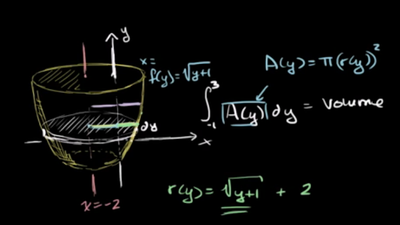 y
x=
f(y)=√y+1
A(y)=π(r(y))²
∫₋₁³ A(y) dy = volume
dy
x
x=-2
r(y)=√y+1 + 2